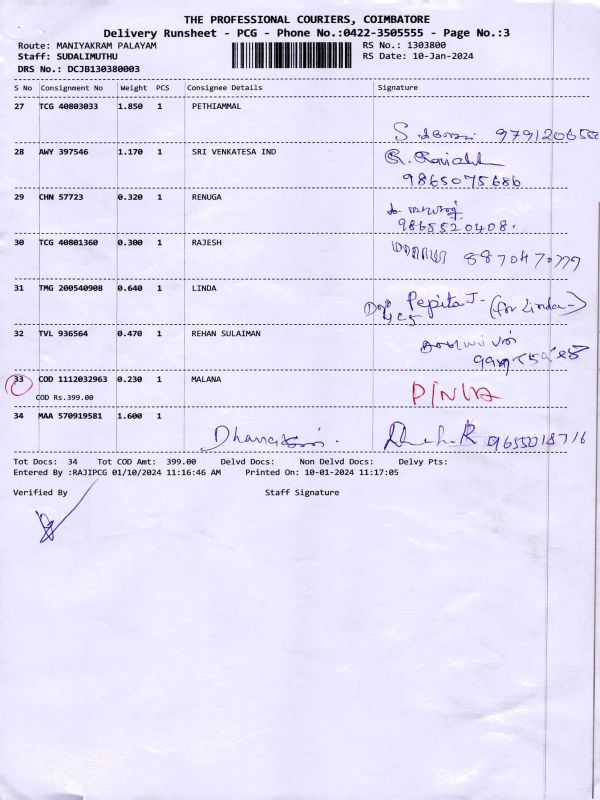 THE PROFESSIONAL COURIERS, COIMBATORE
Delivery Runsheet - PCG - Phone No.:0422-3505555 - Page No.:3
Route: MANIYAKRAM PALAYAM
RS No.: 1303800
Staff: SUDALIMUTHU
RS Date: 10-Jan-2024
DRS No.: DCJB130380003
S No Consignment No Weight PCS Consignee Details Signature
27 TCG 40803033 1.850 1 PETHIAMMAL
28 AWY 397546 1.170 1 SRI VENKATESA IND
9865075686
29 CHN 57723 0.320 1 RENUGA
9865520408.
30 TCG 40801360 0.300 1 RAJESH
31 TMG 200540908 0.640 1 LINDA
Pepita J - (for Linda -)
32 TVL 936564 0.470 1 REHAN SULAIMAN
33 COD 1112032963 0.230 1 MALANA
COD Rs.399.00
P/N/A
34 MAA 570919581 1.600 1
9655018716
Tot Docs: 34 Tot COD Amt: 399.00 Delvd Docs: Non Delvd Docs: Delvy Pts:
Entered By :RAJIPCG 01/10/2024 11:16:46 AM Printed On: 10-01-2024 11:17:05
Verified By Staff Signature